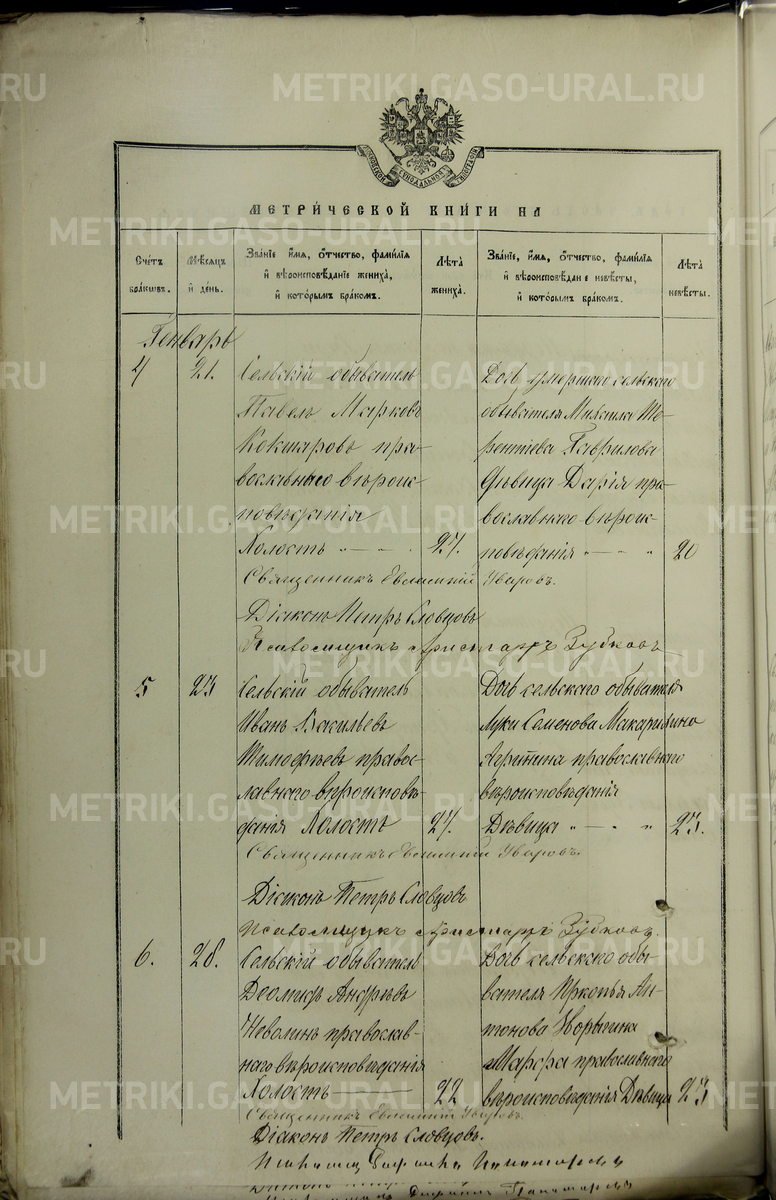 МЕТРИ́ЧЕСКОЙ КНИ́ГИ НА
Сче́тъ бра́кшвъ.
Мѣ́сяцъ и҆ де́нь.
Зва́нїе и҆́мя, ѻ҆́тчество, фами́лїя и҆ вѣроисповѣ́данїе жениха̀, и҆ кото́рымъ бра́комъ.
Лѣ́та жениха̀.
Зва́нїе, и҆́мя, ѻ҆́тчество, фами́лїя и҆ вѣроисповѣ́дан е невѣ́сты, и҆ кото́рымъ бра́комъ.
Лѣ́та невѣ́сты.
Генварь
4 21. Сельскій обыватель
Павелъ Марковъ
Кокшаровъ пра-
вославнаго вѣроис-
повѣданія
Холостъ 27.
Дочь умершаго сельскаго
обывателя Михаила Те-
рентіева Гаврилова
дѣвица Дарія пра-
вославнаго вѣроис-
повѣданія 20
Священникъ Евлампій Уваровъ.
Діаконъ Петръ Словцовъ
Псаломщикъ Аристархъ Зубковъ
5 23 Сельскій обыватель
Иванъ Васильевъ
Тимофѣевъ правос-
лавнаго вѣроисповѣ-
данія Холостъ 27.
Дочь сельскаго обывателя
Луки Семенова Макарихина
православнаго
вѣроисповѣданія
Дѣвица 23.
Священникъ Евлампій Уваровъ.
Діаконъ Петръ Словцовъ
Псаломщикъ Аристархъ Зубковъ.
6. 28. Сельскій обыватель
Деомидъ Андрѣевъ
Неволинъ православ-
наго вѣроисповѣданія
Холостъ 22
Дочь сельскаго обы-
вателя Прокопья Ан-
тонова Норицина
Марфа православнаго
вѣроисповѣданія Дѣвица 23
Священникъ Евлампій Уваровъ
Діаконъ Петръ Словцовъ.
METRIKI.GASO-URAL.RU